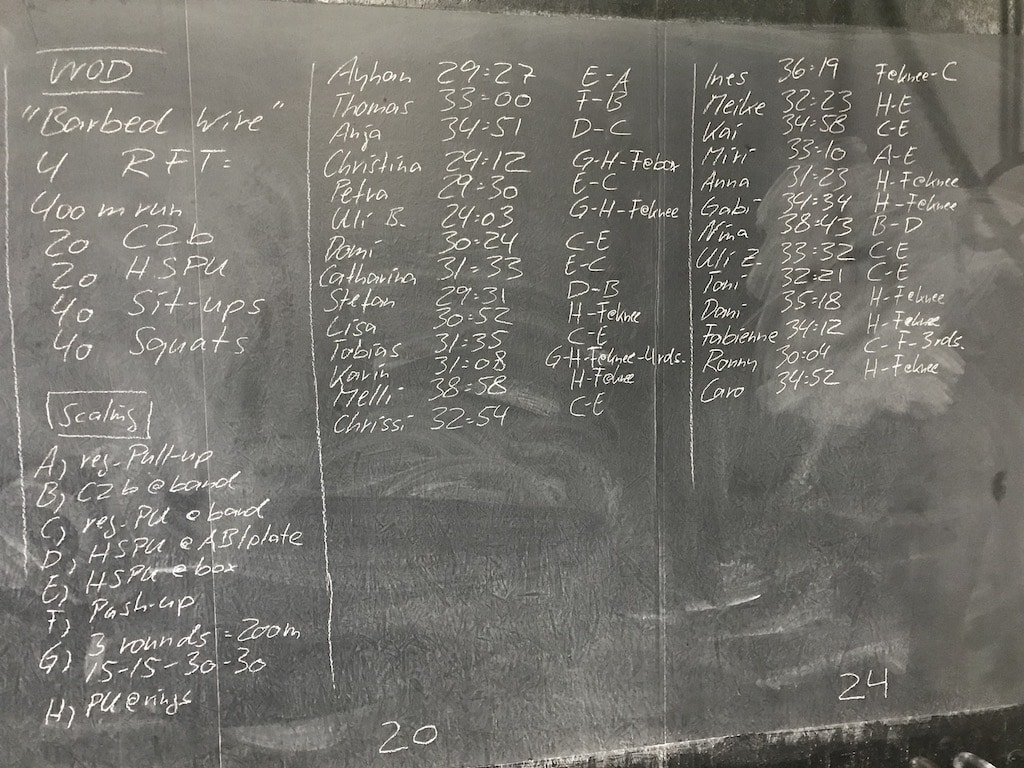 WOD
"Barbed Wire"
4 RFT:
400 m run
20 C2b
20 HSPU
40 Sit-ups
40 Squats
Scaling
A) reg. Pull-up
B) C2b @ band
C) reg. PU @ band
D) HSPU @ AB/plate
E) HSPU @ box
F) Push-up
G) 3 rounds = 200m
15-15-30-30
H) PU @ rings
Ayhan 29:27 E-A
Thomas 33:00 F-B
Anja 34:51 D-C
Christina 24:12 G-H-F@box
Petra 29:30 E-C
Uli B. 24:03 G-H-F@knee
Domi 30:24 C-E
Catharina 31:33 E-C
Stefan 29:31 D-B
Lisa 30:52 H-F@knee
Tobias 31:35 C-E
Karin 31:08 G-H-F@knee-4rds.
Melli 38:58 H-F@knee
Chrissi 32:54 C-E
20
Ines 36:19 F@knee-C
Meike 32:23 H-E
Kai 34:58 C-E
Miri 33:10 A-E
Anna 31:23 H-F@knee
Gabi 34:34 H-F@knee
Nina 38:43 B-D
Uli Z. 33:32 C-E
Toni 32:21 C-E
Dani 35:18 H-F@knee
Fabienne 34:12 H-F@knee
Ronny 30:04 C-F-3rds.
Caro 34:52 H-F@knee
24